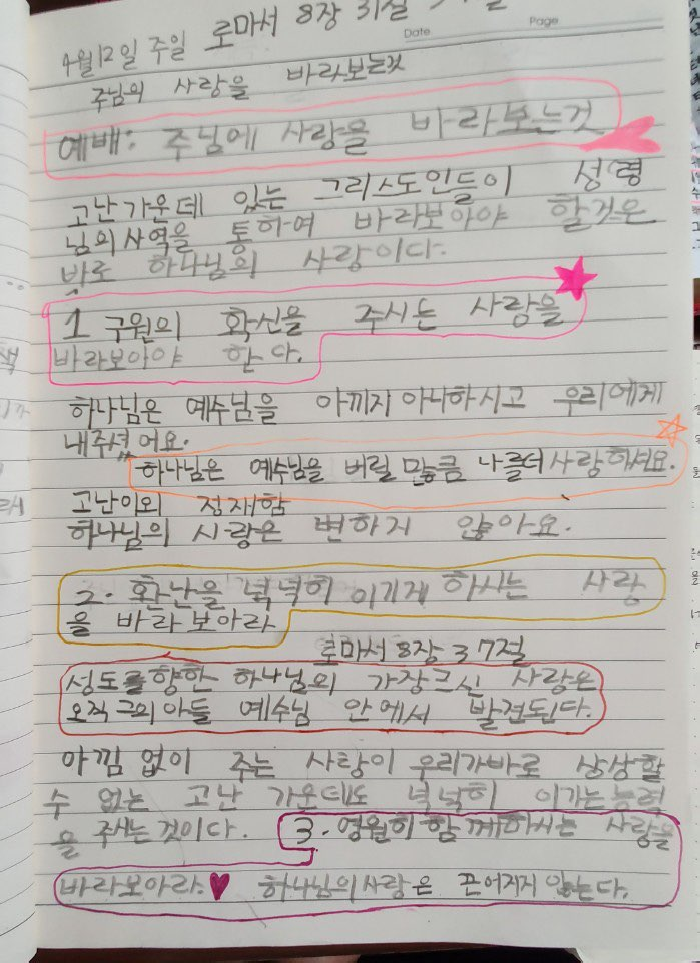 4월12일 주일 로마서 8장 31절
Date
Page
주님의 사랑을 바라보는것
예배: 주님에 사랑을 바라보는것
고난가운데 있는 그리스도인들이 성령
님의사역을 통하여 바라보아야 할것은
바로 하나님의 사랑이다.
1 구원의 확신을 주시는 사랑을
바라보아야 한다.
하나님은 예수님을 아끼지아니하시고 우리에게
내주셨어요.
하나님은 예수님을 버릴 만큼 나를더 사랑하셔요.
고난이외 정재함
하나님의 사랑은 변하지 않아요.
2. 환난을 넉넉히 이기게 하시는 사랑
을 바라보아라
로마서 8장 37절
성도를향한 하나님의 가장크신 사랑은
오직그의아들 예수님 안에서 발견된다.
아낌없이 주는 사랑이 우리가바로 상상할
수 없는 고난 가운데도 넉넉히 이기는능력
을 주시는것이다. 3. 영원히함께하시는 사랑을
바라보아라. 하나님의사랑은 끈어지지 않는다.